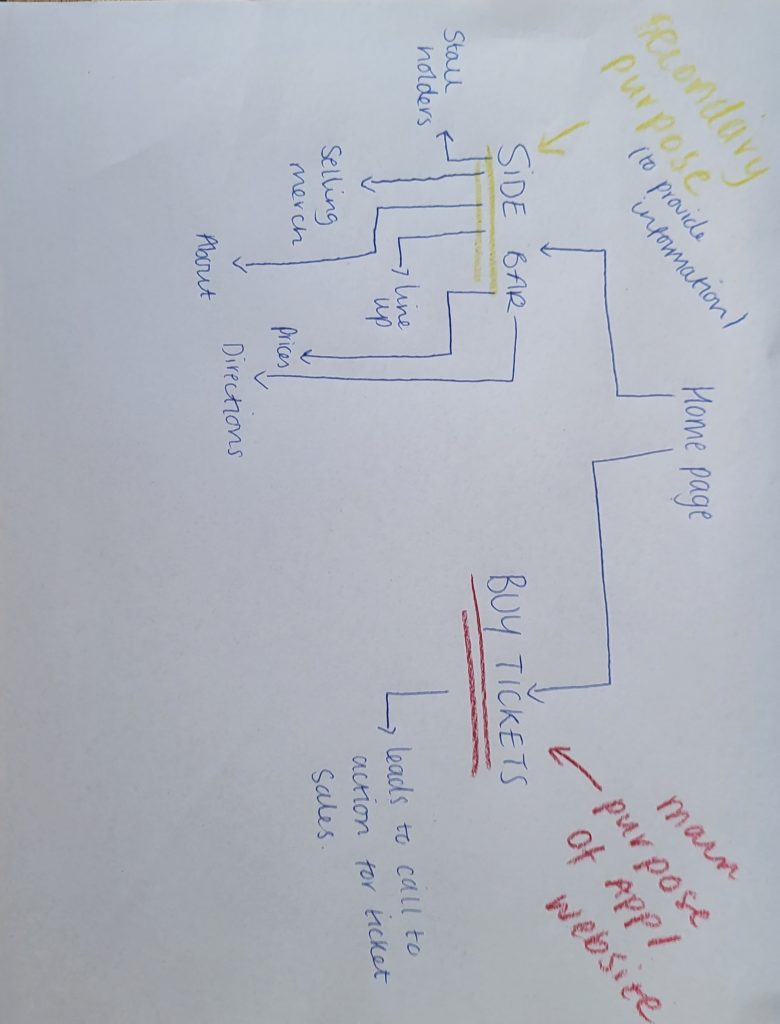 Home page
secondary
purpose
(to provide
information)
SIDE BAR
Stall
holders
Selling
merch
About
Line
up
Prices
Directions
main
purpose
of APP/
website
BUY TICKETS
leads to call to
action for ticket
sales.